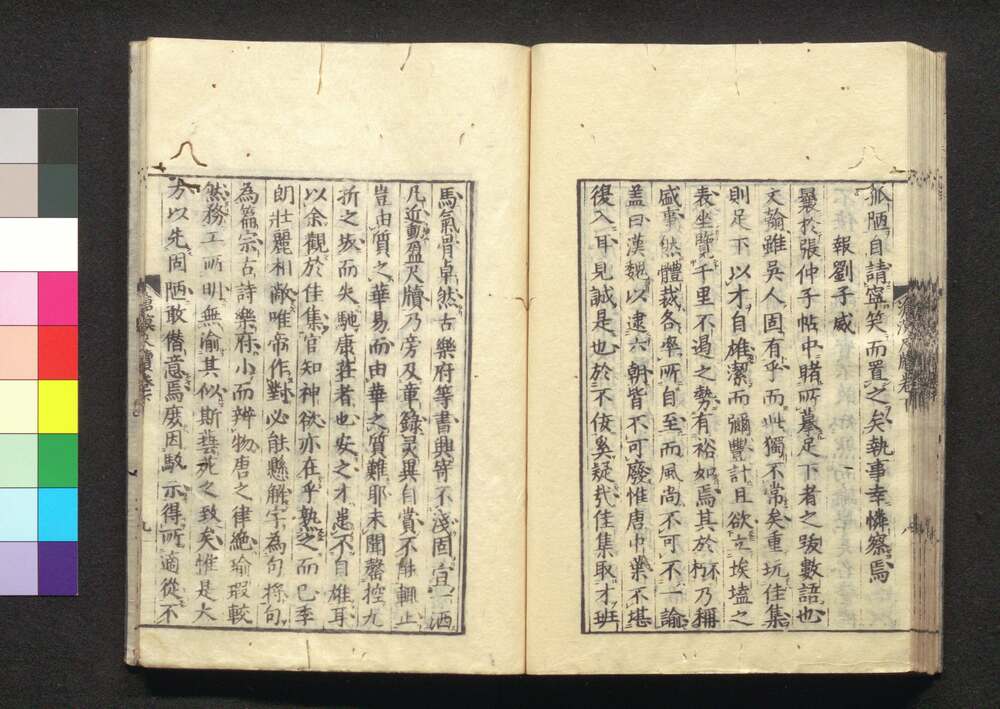 孤陋自請寧笑而置之矣執事幸憐察焉
報劉子威
曩於張仲子帖中睹所墓足下者之跋數語也
文翰雖吳人固有乎而此獨不常矣重玩佳集
則足下以才自雄潔而彌豐計且欲立埃壒之
表坐覽千里不遏之勢有裕如焉其於不朽乃稱
盛事然體裁各率所自至而風尚不可不一論
蓋曰漢魏以逮六朝皆不可廢惟唐中葉不堪
復入耳見誠是也於不佞奚疑哉佳集取才班
馬氣骨卓然古樂府等書興寄不淺固宜一洒
凡近動盈尺牘乃旁及章錄灵異自賞不能輒止
豈由質之華易而由華之質難耶未聞罄控九
折之坂而失馳康莊者也安之才患不自雄耳
以余觀於佳集官知神欲亦在乎熟之而已季
朗壯麗相敵唯常作對必能懸解字為句搽句
為篇宗古詩樂府小而辨物唐之律絕瑜瑕較
然務工所明無喻其似斯藝死之致矣惟是大
方以先固陋敢僭意焉庶因駁示得所適從不